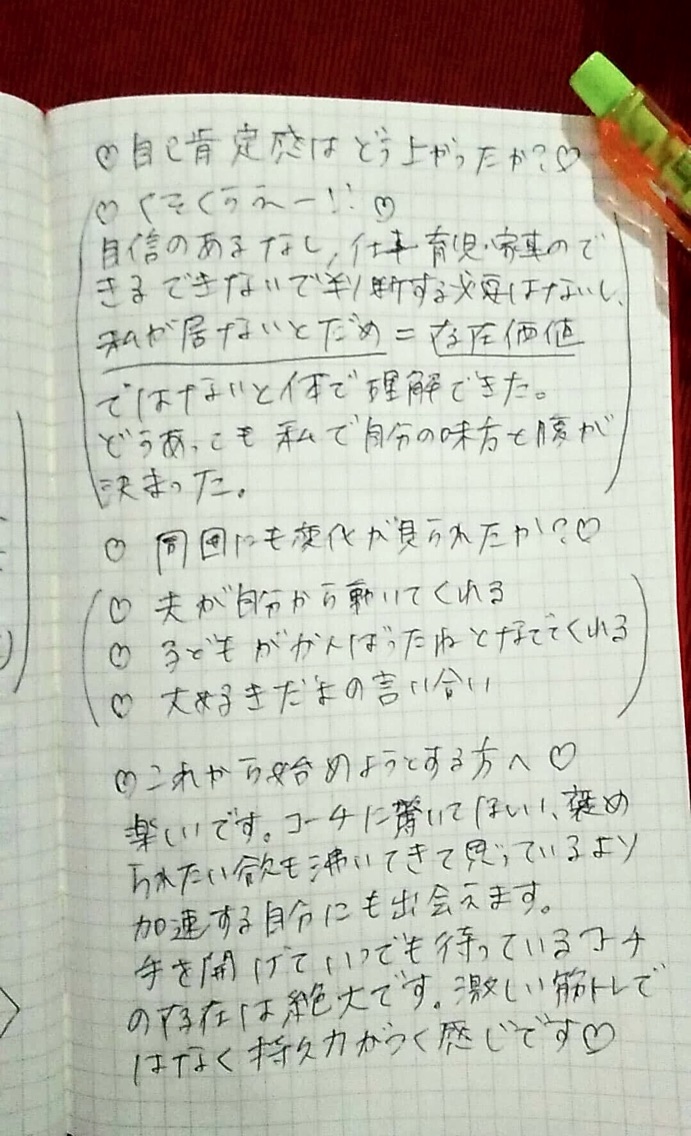 ♡自己肯定感はどう上がったか?♡
♡くそくらえー!!♡
自信のあるなし、仕事育児・家事ので
きるできないで判断する必要はないし、
私が居ないとだめ=存在価値
ではないと体で理解できた。
どうあっても私で自分の味方と腹が
決まった。
♡周囲にも変化が見られたか?♡
♡夫が自分から動いてくれる
♡子どもががんばったねとなでてくれる
♡大好きだよの言い合い
♡これから始めようとする方へ♡
楽しいです。コーチに驚いてほしい、褒め
られたい欲も沸いてきて思っているより
加速する自分にも出会えます。
手を開げていつでも待っているコーチ
の存在は絶大です。激しい筋トレで
はなく持久力がつく感じです♡